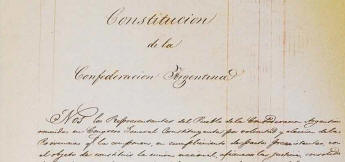 Constitucion
de la
Confederacion Argentina
Nos los Representantes del Pueblo de la Confederacion Argentina
reunidos en Congreso General Constituyente por voluntad y eleccion de las
Provincias que la componen, en cumplimiento de pactos preexistentes, con
el objeto de constituir la union nacional, afianzar la justicia, consolidar